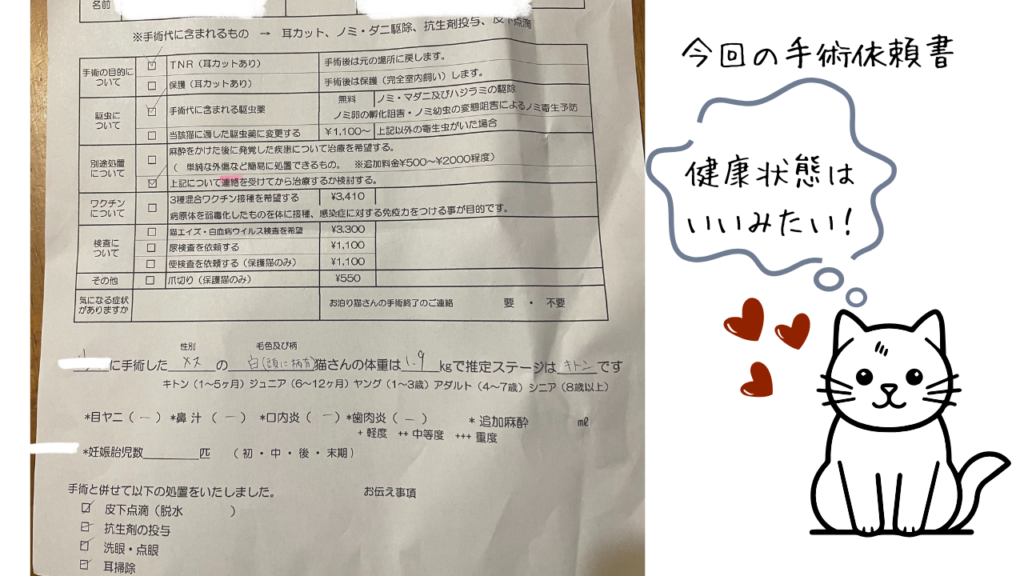 名前
※手術代に含まれるもの → 耳カット、ノミ・ダニ駆除、抗生剤投与、皮下点滴
手術の目的について
TNR（耳カットあり） 手術後は元の場所に戻します。
保護（耳カットあり） 手術後は保護（完全室内飼い）します。
駆虫について
手術代に含まれる駆虫薬 無料 ノミ・マダニ及びハジラミの駆除
ノミ卵の孵化阻害・ノミ幼虫の変態阻害によるノミ寄生予防
当該猫に適した駆虫薬に変更する ¥1,100～ 上記以外の寄生虫がいた場合
別途処置について
麻酔をかけた後に発覚した疾患について治療を希望する。
（ 単純な外傷など簡易に処置できるもの。 ※追加料金¥500～¥2000程度）
上記について連絡を受けてから治療するか検討する。
ワクチンについて
3種混合ワクチン接種を希望する ¥3,410
病原体を弱毒化したものを体に接種、感染症に対する免疫力をつける事が目的です。
検査について
猫エイズ・白血病ウイルス検査を希望 ¥3,300
尿検査を依頼する ¥1,100
便検査を依頼する（保護猫のみ） ¥1,100
その他 爪切り（保護猫のみ） ¥550
気になる症状がありますか
お泊り猫さんの手術終了のご連絡 要 ・ 不要
性別 毛色及び柄
に手術した メス の 白(頭に柄有) 猫さんの体重は 1.9 kgで推定ステージは キトン です
キトン（1～5ヶ月）ジュニア（6～12ヶ月）ヤング（1～3歳）アダルト（4～7歳）シニア（8歳以上）
*目ヤニ（ － ）*鼻汁（ － ）*口内炎（ － ）*歯肉炎（ － ） *追加麻酔 ㎖
+ 軽度 ++ 中等度 +++ 重度
*妊娠胎児数 匹 （初・中・後・末期）
手術と併せて以下の処置をいたしました。 お伝え事項
皮下点滴（脱水 ）
抗生剤の投与
洗眼・点眼
耳掃除
今回の手術依頼書
健康状態は
いいみたい！